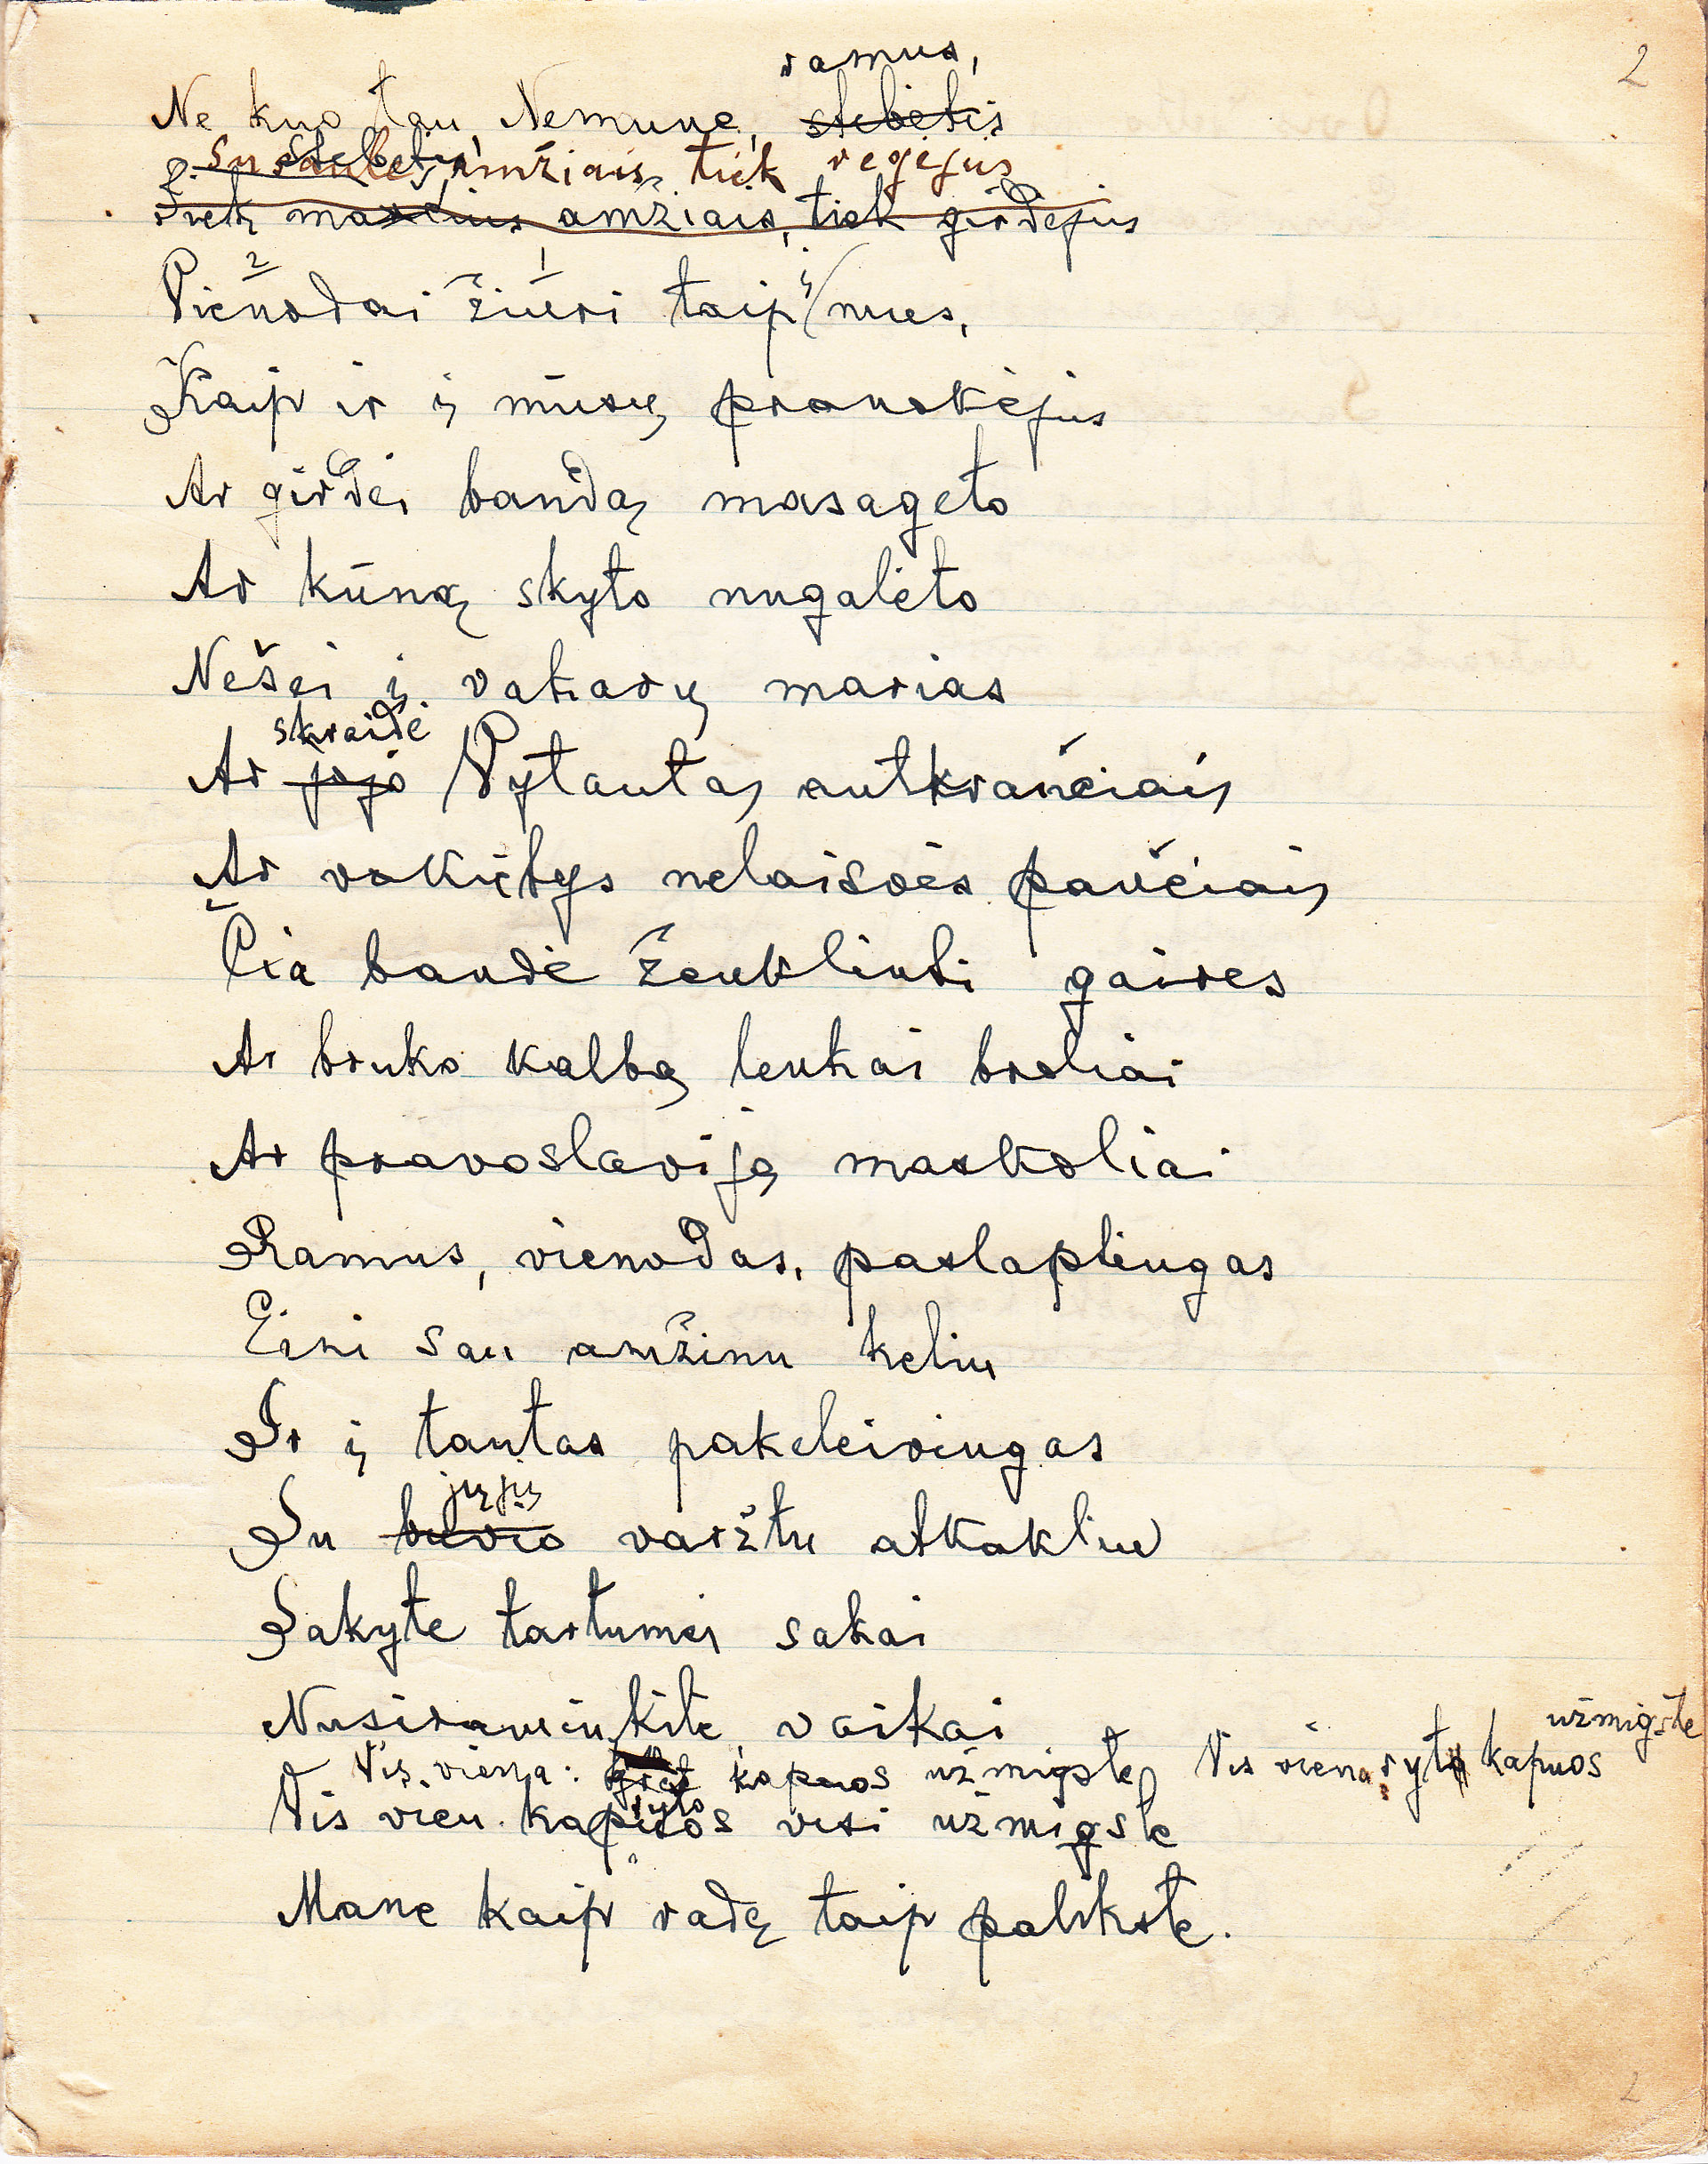 2
ramus,
Ne kuo tau, Nemune, stebėtis
Su saule, amžiais tiek regėjus
amžiais, tiek girdėjus
2 1
Vienodai žiūri taip į mus,
Kaip ir į mūsų pranokėjus
Ar girdei bandą masageto
Ar kūną skyto nugalėto
Nešei į vakarų marias
skraidė
Ar jojo Vytautas antkrančiais
Ar vokietys nelaisvės pančiais
Čia bandė ženklinti gaires
Ar bruko kalbą lenkai broliai
Ar pravoslaviją maskoliai
Ramus, vienodas, paslaptingas
Eini sau amžinu keliu
Ir į tautas pakeleivingas
jųjų
Su būvio varžtu atkakliu
Sakyte tartumei sakai
Nusiraminkite, vaikai
užmigste
Vis viena: kapuos užmigste Vis viena ryto kapuos
ryto
Vis vien kapuos visi užmigste
Mane kaip radę taip palikste.
2